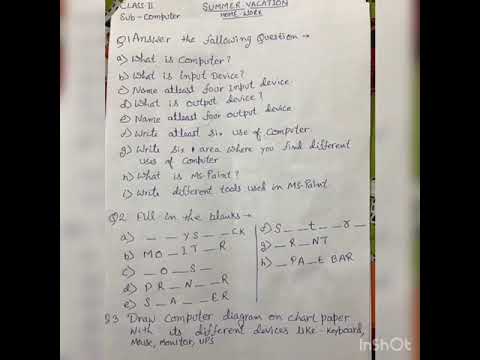 CLASS II
SUMMER VACATION
Sub - Computer
HOME WORK
Q1 Answer the following Question →
a) What is Computer?
b) What is Input Device?
c) Name atleast four Input device
d) What is output device?
e) Name atleast four output device
f) Write atleast six use of Computer
g) Write six area where you find different
uses of Computer
h) What is MS-Paint?
i) Write different tools used in MS-Paint.
Q2 Fill in the blanks →
a) _ _ YS _ _ CK
b) MO _ IT _ R
c) _ O _ S _
d) PR _ N _ _ R
e) S _ A _ _ ER
f) S _ _ t _ _ r _
g) _ R _ NT
h) _ PA _ E BAR
Q3 Draw Computer diagram on chart paper
With its different devices like - Keyboard,
Mouse, Monitor, UPS
InShOt